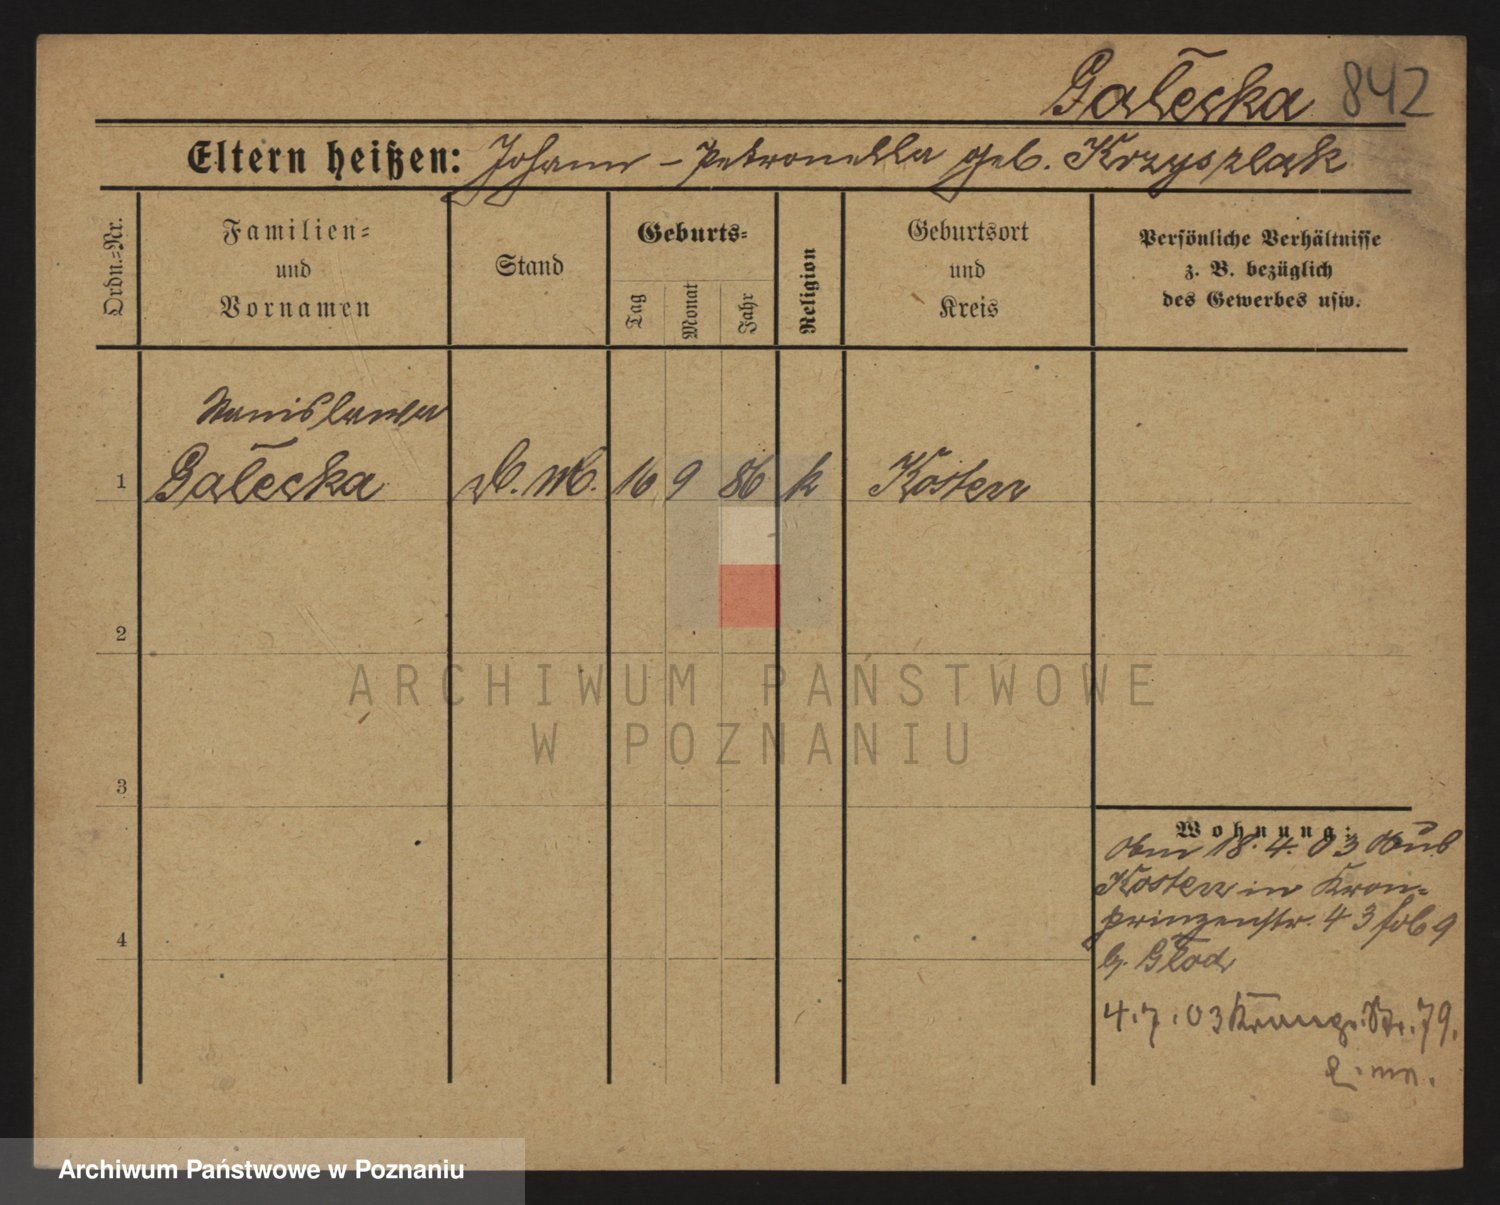 Gałecka 842
Eltern heißen: Johann – Petronella geb. Krzyszlak
Ordn.-Nr.
Familien-
und
Vornamen
Stand
Geburts-
Tag
Monat
Jahr
Religion
Geburtsort
und
Kreis
Persönliche Verhältnisse
z. B. bezüglich
des Gewerbes usw.
Stanislawa
1 Gałecka D. M. 16 9 86 k Kosten
2
3
4
Wohnung:
18. 4. 03 aus
Kosten in Kron-
prinzenstr. 43
b. Głod
4. 7. 03 Kronpr. Str. 79.
ARCHIWUM PAŃSTWOWE
W POZNANIU
Archiwum Państwowe w Poznaniu